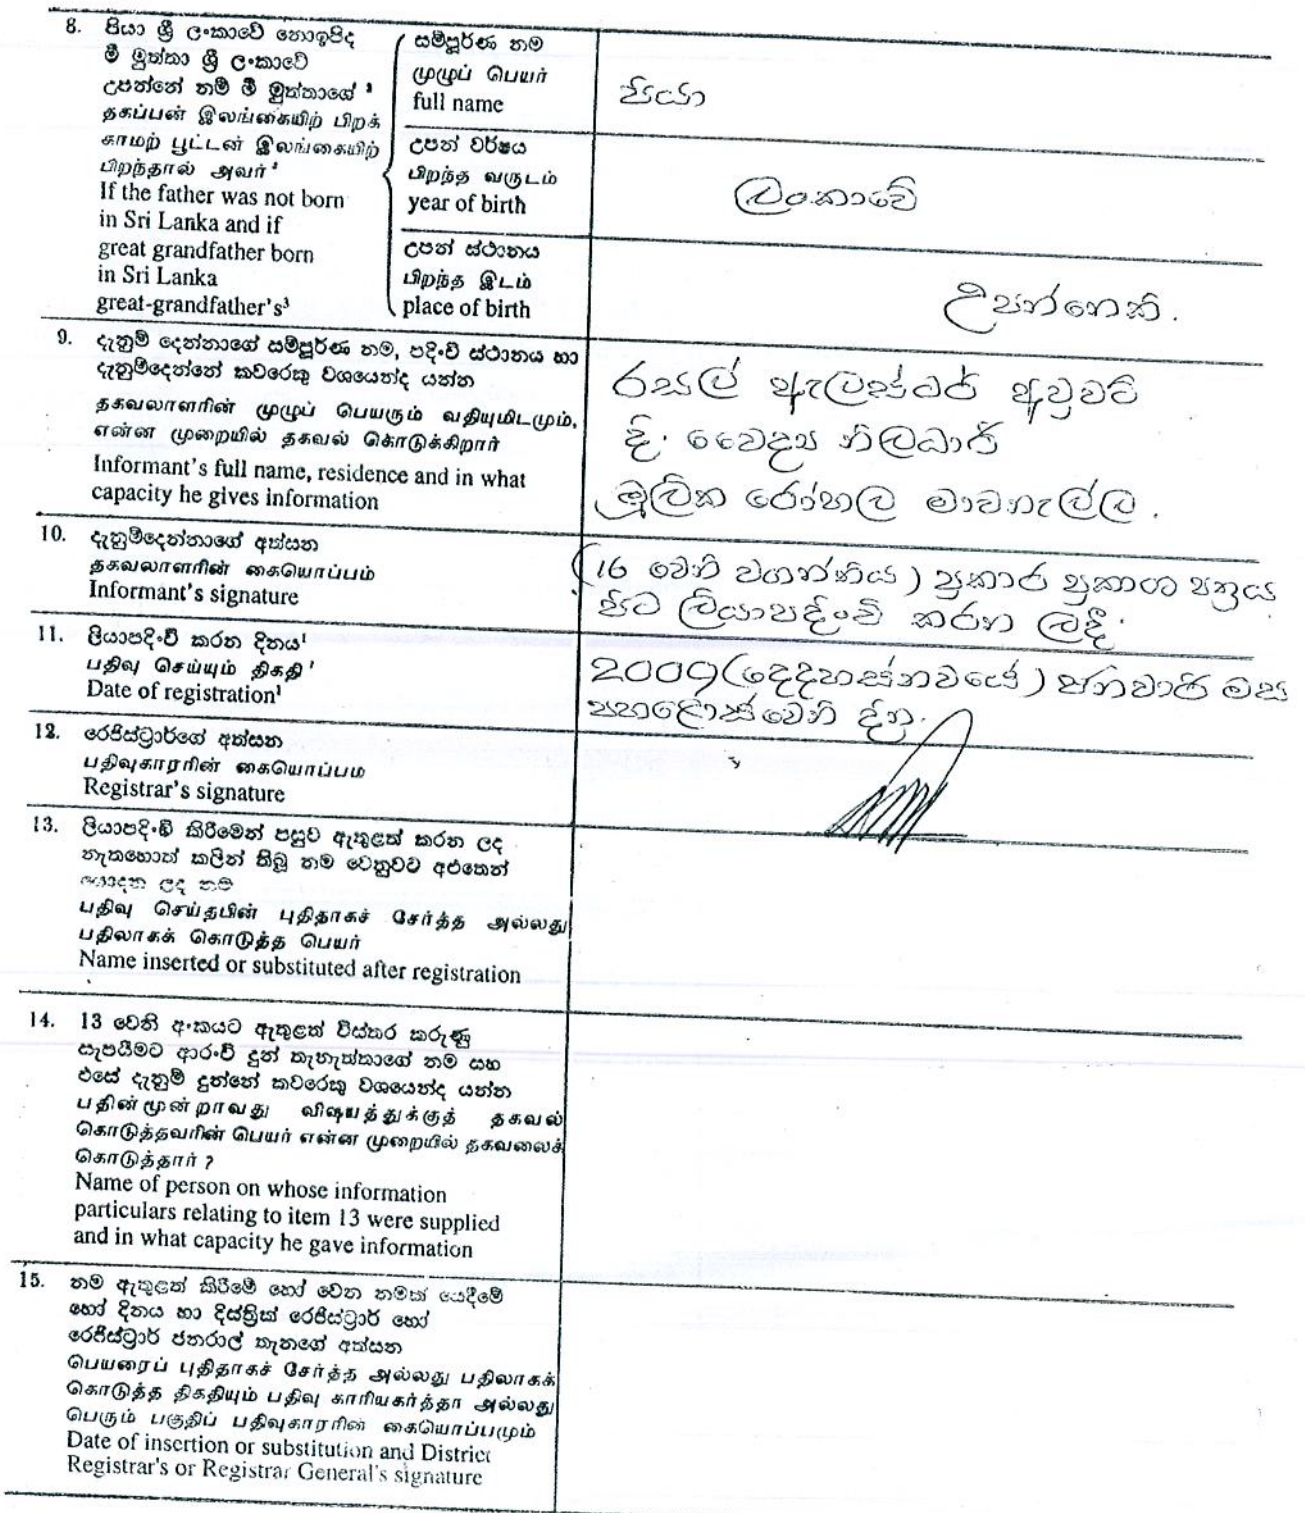 8. පියා ශ්‍රී ලංකාවේ නොඉපිද
මී මුත්තා ශ්‍රී ලංකාවේ
උපන්නේ නම් මී මුත්තාගේ ³
தகப்பன் இலங்கையிற் பிறக்
காமற் பூட்டன் இலங்கையிற்
பிறந்தால் அவர் ³
If the father was not born
in Sri Lanka and if
great grandfather born
in Sri Lanka
great-grandfather's³
සම්පූර්ණ නම
முழுப் பெயர்
full name
පියා
උපන් වර්ෂය
பிறந்த வருடம்
year of birth
ලංකාවේ
උපන් ස්ථානය
பிறந்த இடம்
place of birth
උපන්නෙකි.
9. දැනුම් දෙන්නාගේ සම්පූර්ණ නම, පදිංචි ස්ථානය හා
දැනුම්දෙන්නේ කවරෙකු වශයෙන්ද යන්න
தகவலாளரின் முழுப் பெயரும் வதியுமிடமும்,
என்ன முறையில் தகவல் கொடுக்கிறார்
Informant's full name, residence and in what
capacity he gives information
රසල් ඇලස්ටර් අවුවටි
දි. වෛද්‍ය නිලධාරි
මූලික රෝහල මාවනැල්ල.
10. දැනුම්දෙන්නාගේ අත්සන
தகவலாளரின் கையொப்பம்
Informant's signature
(16 වෙනි වගන්තිය) ප්‍රකාර ප්‍රකාශ පත්‍රය
පිට ලියාපදිංචි කරන ලදී.
11. ලියාපදිංචි කරන දිනය¹
பதிவு செய்யும் திகதி ¹
Date of registration¹
2009 (දෙදහස්නවයේ) ජනවාරි මස
පහළොස්වෙනි දින.
12. රෙජිස්ට්‍රාර්ගේ අත්සන
பதிவுகாரரின் கையொப்பம
Registrar's signature
13. ලියාපදිංචි කිරීමෙන් පසුව ඇතුළත් කරන ලද
නැතහොත් කලින් තිබූ නම වෙනුවට අළුතෙන්
යොදන ලද නම
பதிவு செய்தபின் புதிதாகச் சேர்த்த அல்லது
பதிலாகக் கொடுத்த பெயர்
Name inserted or substituted after registration
14. 13 වෙනි අංකයට ඇතුළත් විස්තර කරුණු
සැපයීමට ආරංචි දුන් තැනැත්තාගේ නම සහ
එසේ දැනුම් දුන්නේ කවරෙකු වශයෙන්ද යන්න
பதின்மூன்றாவது விஷயத்துக்குத் தகவல்
கொடுத்தவரின் பெயர் என்ன முறையில் தகவலைக்
கொடுத்தார் ?
Name of person on whose information
particulars relating to item 13 were supplied
and in what capacity he gave information
15. නම ඇතුළත් කිරීමේ හෝ වෙන නමක් යෙදීමේ
හෝ දිනය හා දිස්ත්‍රික් රෙජිස්ට්‍රාර් හෝ
රෙජිස්ට්‍රාර් ජනරාල් තැනගේ අත්සන
பெயரைப் புதிதாகச் சேர்த்த அல்லது பதிலாகக்
கொடுத்த திகதியும் பதிவு காரியகர்த்தா அல்லது
பெரும் பகுதிப் பதிவுகாரரின் கையொப்பமும்
Date of insertion or substitution and District
Registrar's or Registrar General's signature